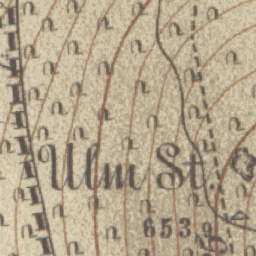 Ulm St.
653,9